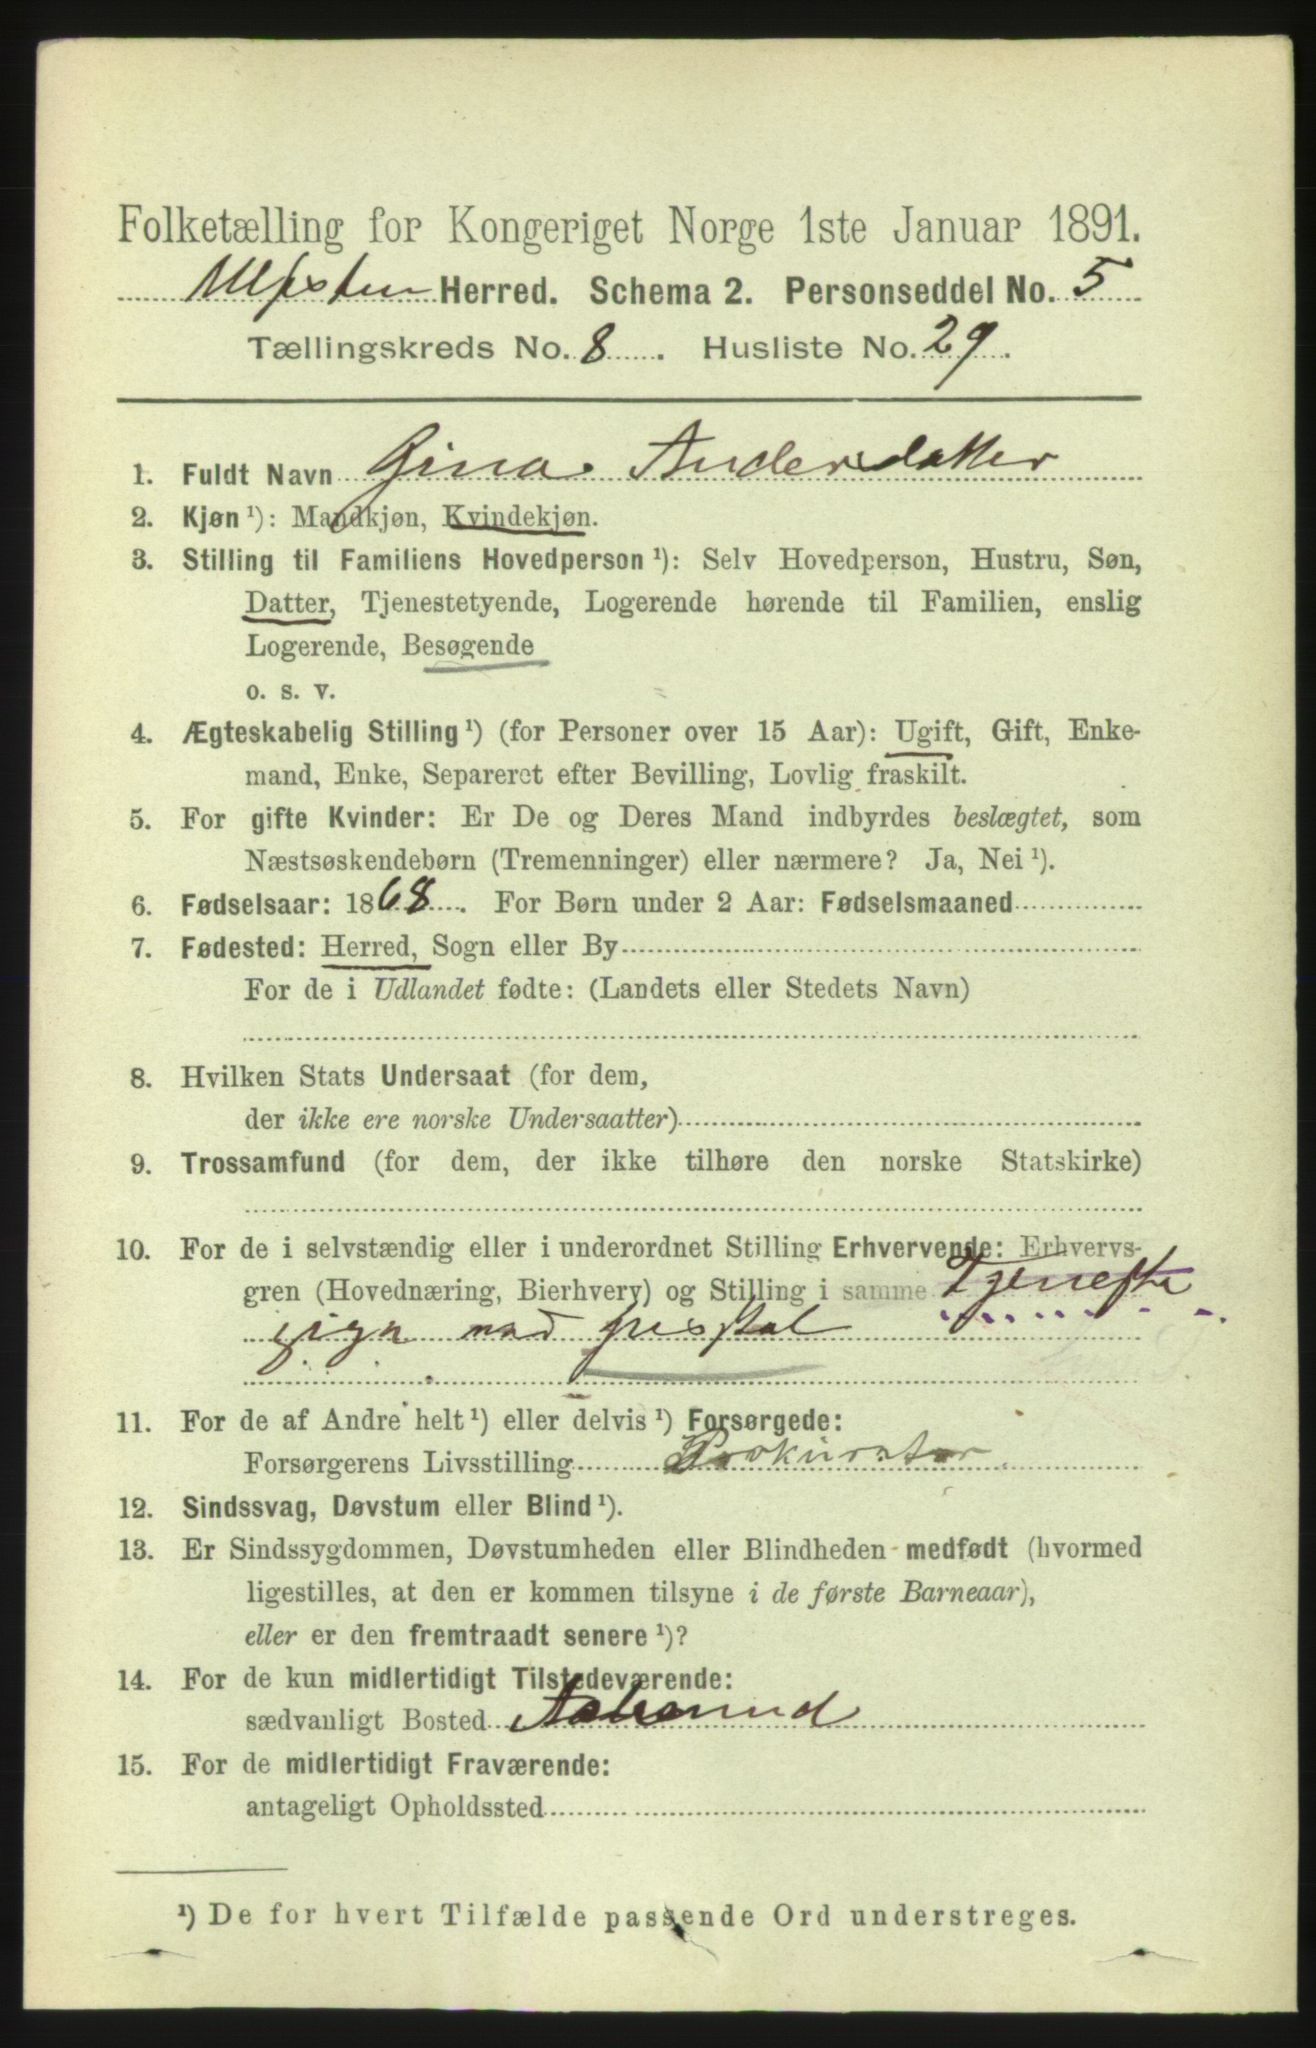 Folketælling for Kongeriget Norge 1ste Januar 1891.
Ulfsten Herred. Schema 2. Personseddel No. 5
Tællingskreds No. 8. Husliste No. 29.
1. Fuldt Navn Gina Andersdatter
2. Kjøn ¹): Mandkjøn, Kvindekjøn.
3. Stilling til Familiens Hovedperson ¹): Selv Hovedperson, Hustru, Søn,
Datter, Tjenestetyende, Logerende hørende til Familien, enslig
Logerende, Besøgende
o. s. v.
4. Ægteskabelig Stilling ¹) (for Personer over 15 Aar): Ugift, Gift, Enke-
mand, Enke, Separeret efter Bevilling, Lovlig fraskilt.
5. For gifte Kvinder: Er De og Deres Mand indbyrdes beslægtet, som
Næstsøskendebørn (Tremenninger) eller nærmere? Ja, Nei ¹).
6. Fødselsaar: 1868. For Børn under 2 Aar: Fødselsmaaned
7. Fødested: Herred, Sogn eller By
For de i Udlandet fødte: (Landets eller Stedets Navn)
8. Hvilken Stats Undersaat (for dem,
der ikke ere norske Undersaatter)
9. Trossamfund (for dem, der ikke tilhøre den norske Statskirke)
10. For de i selvstændig eller i underordnet Stilling Erhvervende: Erhvervs-
gren (Hovednæring, Bierhverv) og Stilling i samme Tjeneste
pige
11. For de af Andre helt ¹) eller delvis ¹) Forsørgede:
Forsørgerens Livsstilling Prokurator
12. Sindssvag, Døvstum eller Blind ¹).
13. Er Sindssygdommen, Døvstumheden eller Blindheden medfødt (hvormed
ligestilles, at den er kommen tilsyne i de første Barneaar),
eller er den fremtraadt senere ¹)?
14. For de kun midlertidigt Tilstedeværende:
sædvanligt Bosted Aalesund
15. For de midlertidigt Fraværende:
antageligt Opholdssted
¹) De for hvert Tilfælde passende Ord understreges.